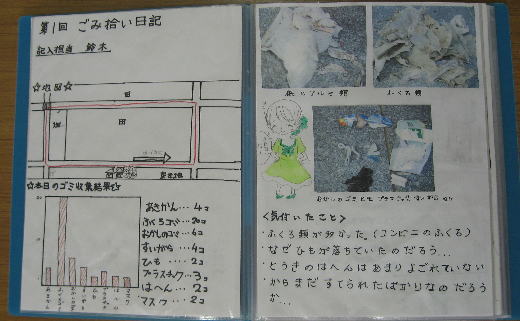 第1回 ごみ拾い日記
記入担当 鈴木
☆地図☆
田
田
畑
☆本日のゴミ収集結果☆
あきかん…4コ
ふくろゴミ…20コ
おかしのゴミ…6コ
すいがら…4コ
ひも…2コ
プラスチック…3コ
はへん…2コ
マスク…2コ
ふくろ類
<気付いたこと>
・ふくろ類が多かった。(コンビニのふくろ)
・なぜひもが落ちていたのだろう…
・とうきのはへんはあまりよごれていない
からまだすてられたばかりなのだろう
か…